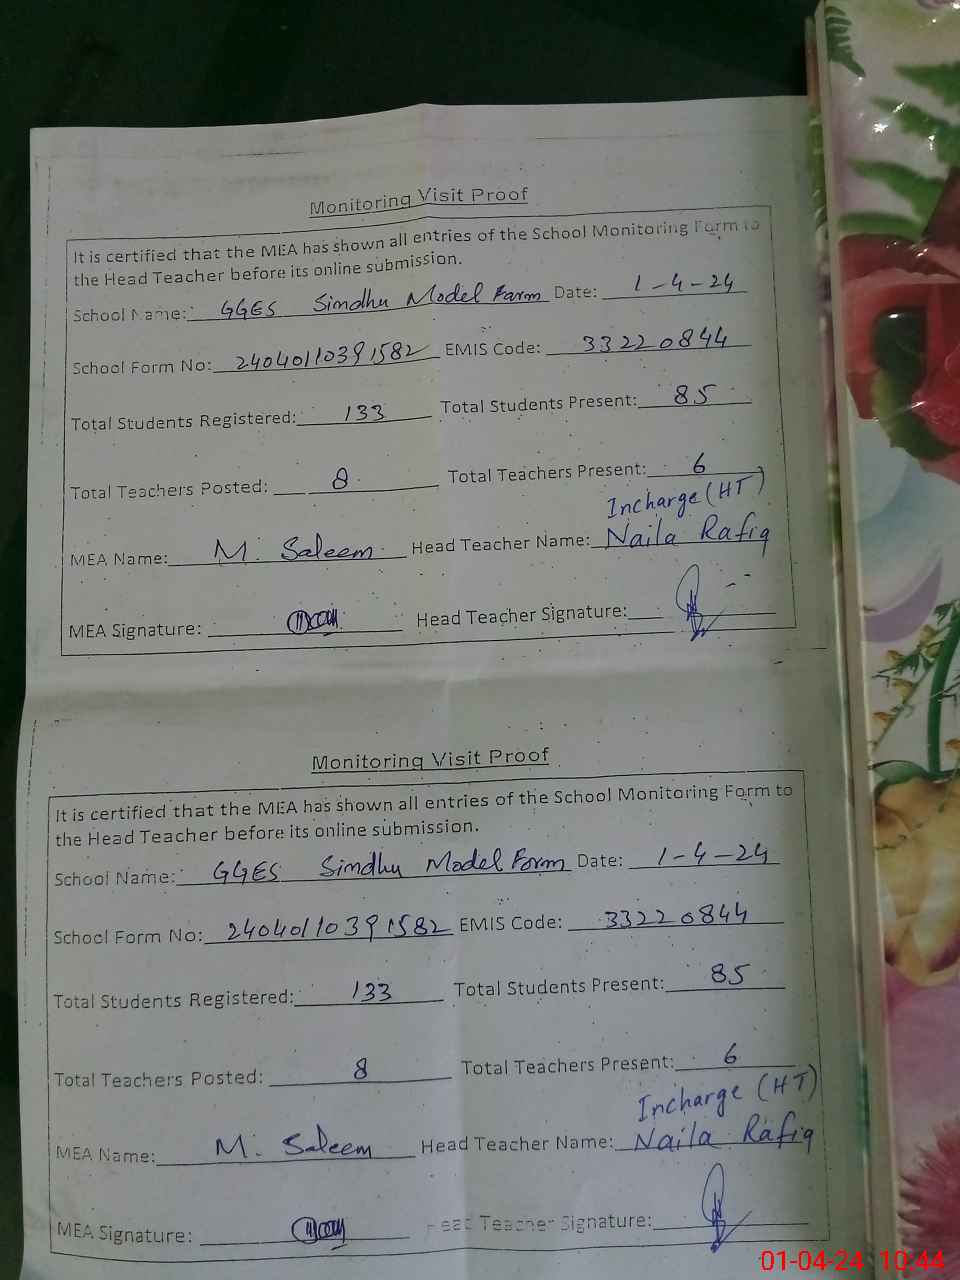 Monitoring Visit Proof
It is certified that the MEA has shown all entries of the School Monitoring Form to
the Head Teacher before its online submission.
School Name: GGES Simdhu Model Farm Date: 1-4-24
School Form No: 24040110391582 EMIS Code: 33220844
Total Students Registered: 133 Total Students Present: 85
Total Teachers Posted: 8 Total Teachers Present: 6
Incharge (HT)
MEA Name: M. Saleem Head Teacher Name: Naila Rafiq
MEA Signature: Head Teacher Signature:
Monitoring Visit Proof
It is certified that the MEA has shown all entries of the School Monitoring Form to
the Head Teacher before its online submission.
School Name: GGES Simdhu Model Farm Date: 1-4-24
School Form No: 24040110391582 EMIS Code: 33220844
Total Students Registered: 133 Total Students Present: 85
Total Teachers Posted: 8 Total Teachers Present: 6
Incharge (HT)
MEA Name: M. Saleem Head Teacher Name: Naila Rafiq
MEA Signature: Head Teacher Signature:
01-04-24 10:44